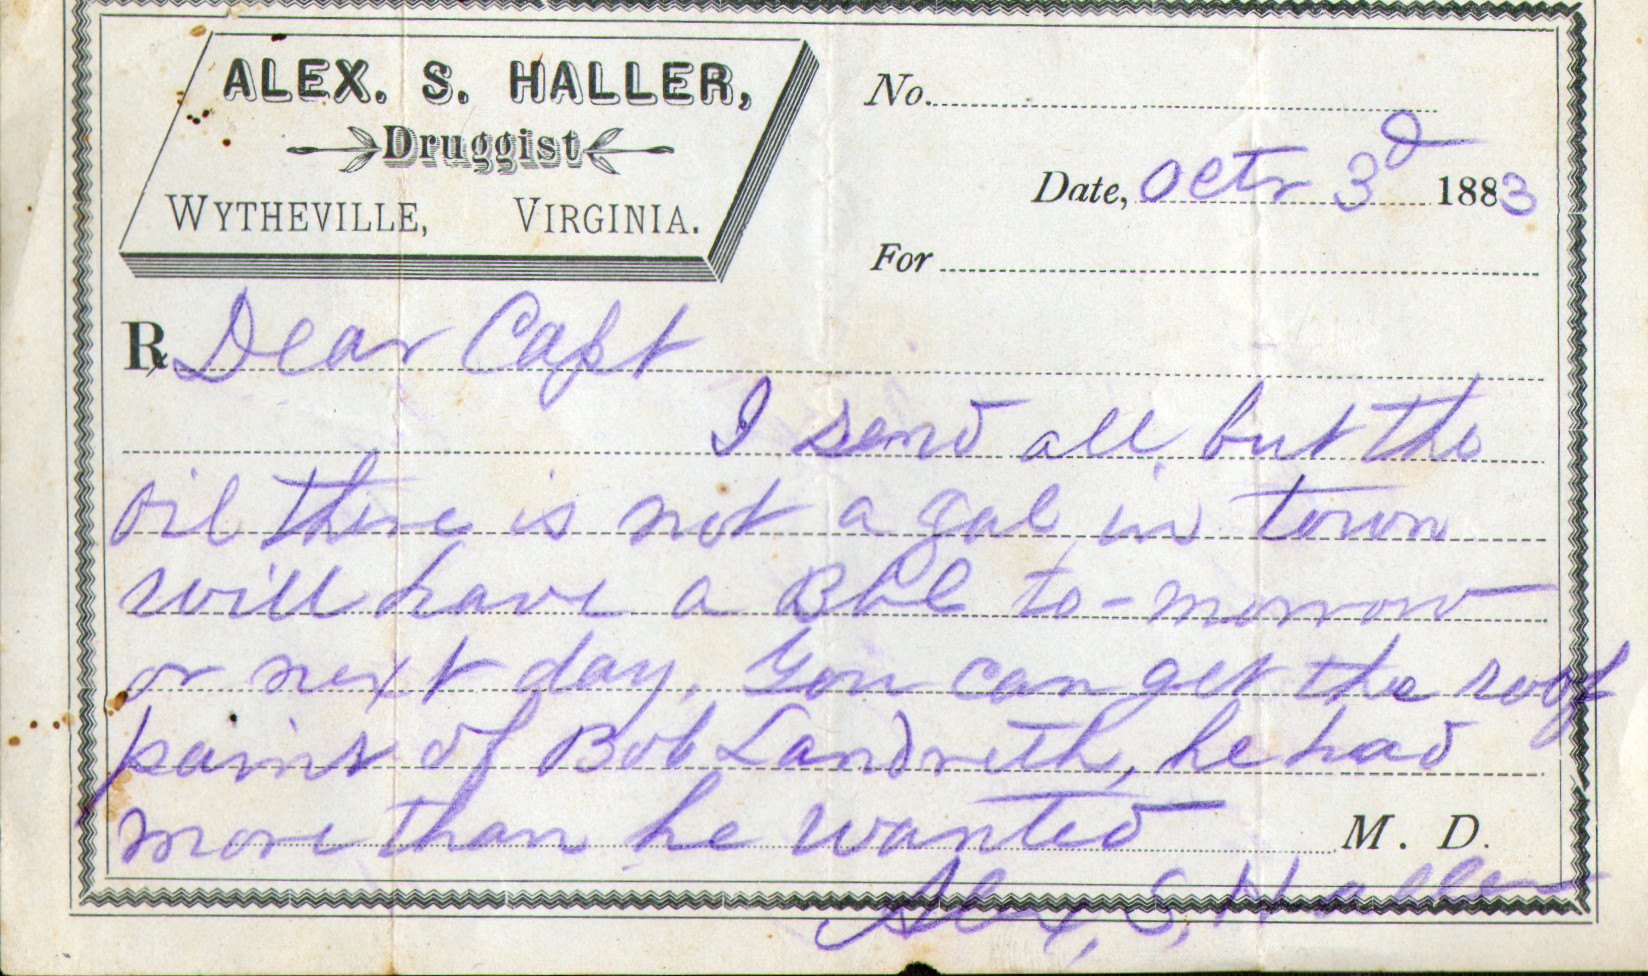 ALEX. S. HALLER,
Druggist
WYTHEVILLE, VIRGINIA.
No.
Date, Octr 3d 1883
For
Rx Dear Capt
I send all but the
oil there is not a gal in town
will have a Bbl to-morrow
or next day. You can get the roof
paint of Bob Landreth, he had
more than he wanted
M. D.
Alex, S, Haller